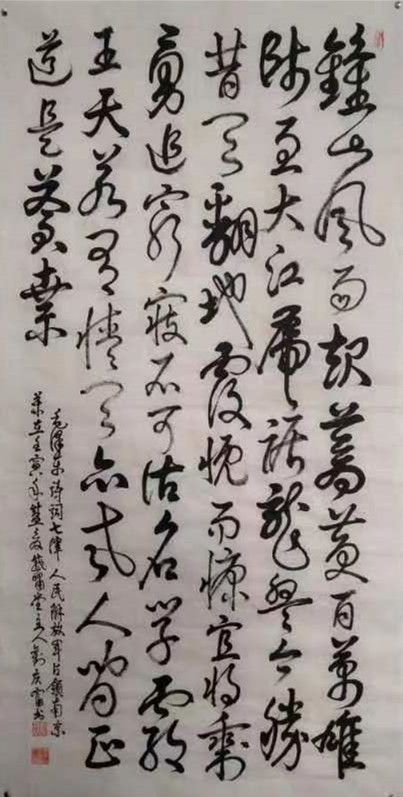 鐘山風雨起蒼黃百萬雄
師過大江虎踞龍盤今勝
昔天翻地覆慨而慷宜將剩
勇追窮寇不可沽名學霸
王天若有情天亦老人間正
道是滄桑
毛澤東诗词七律 人民解放軍占領南京
歲在壬寅年 堂主人 书